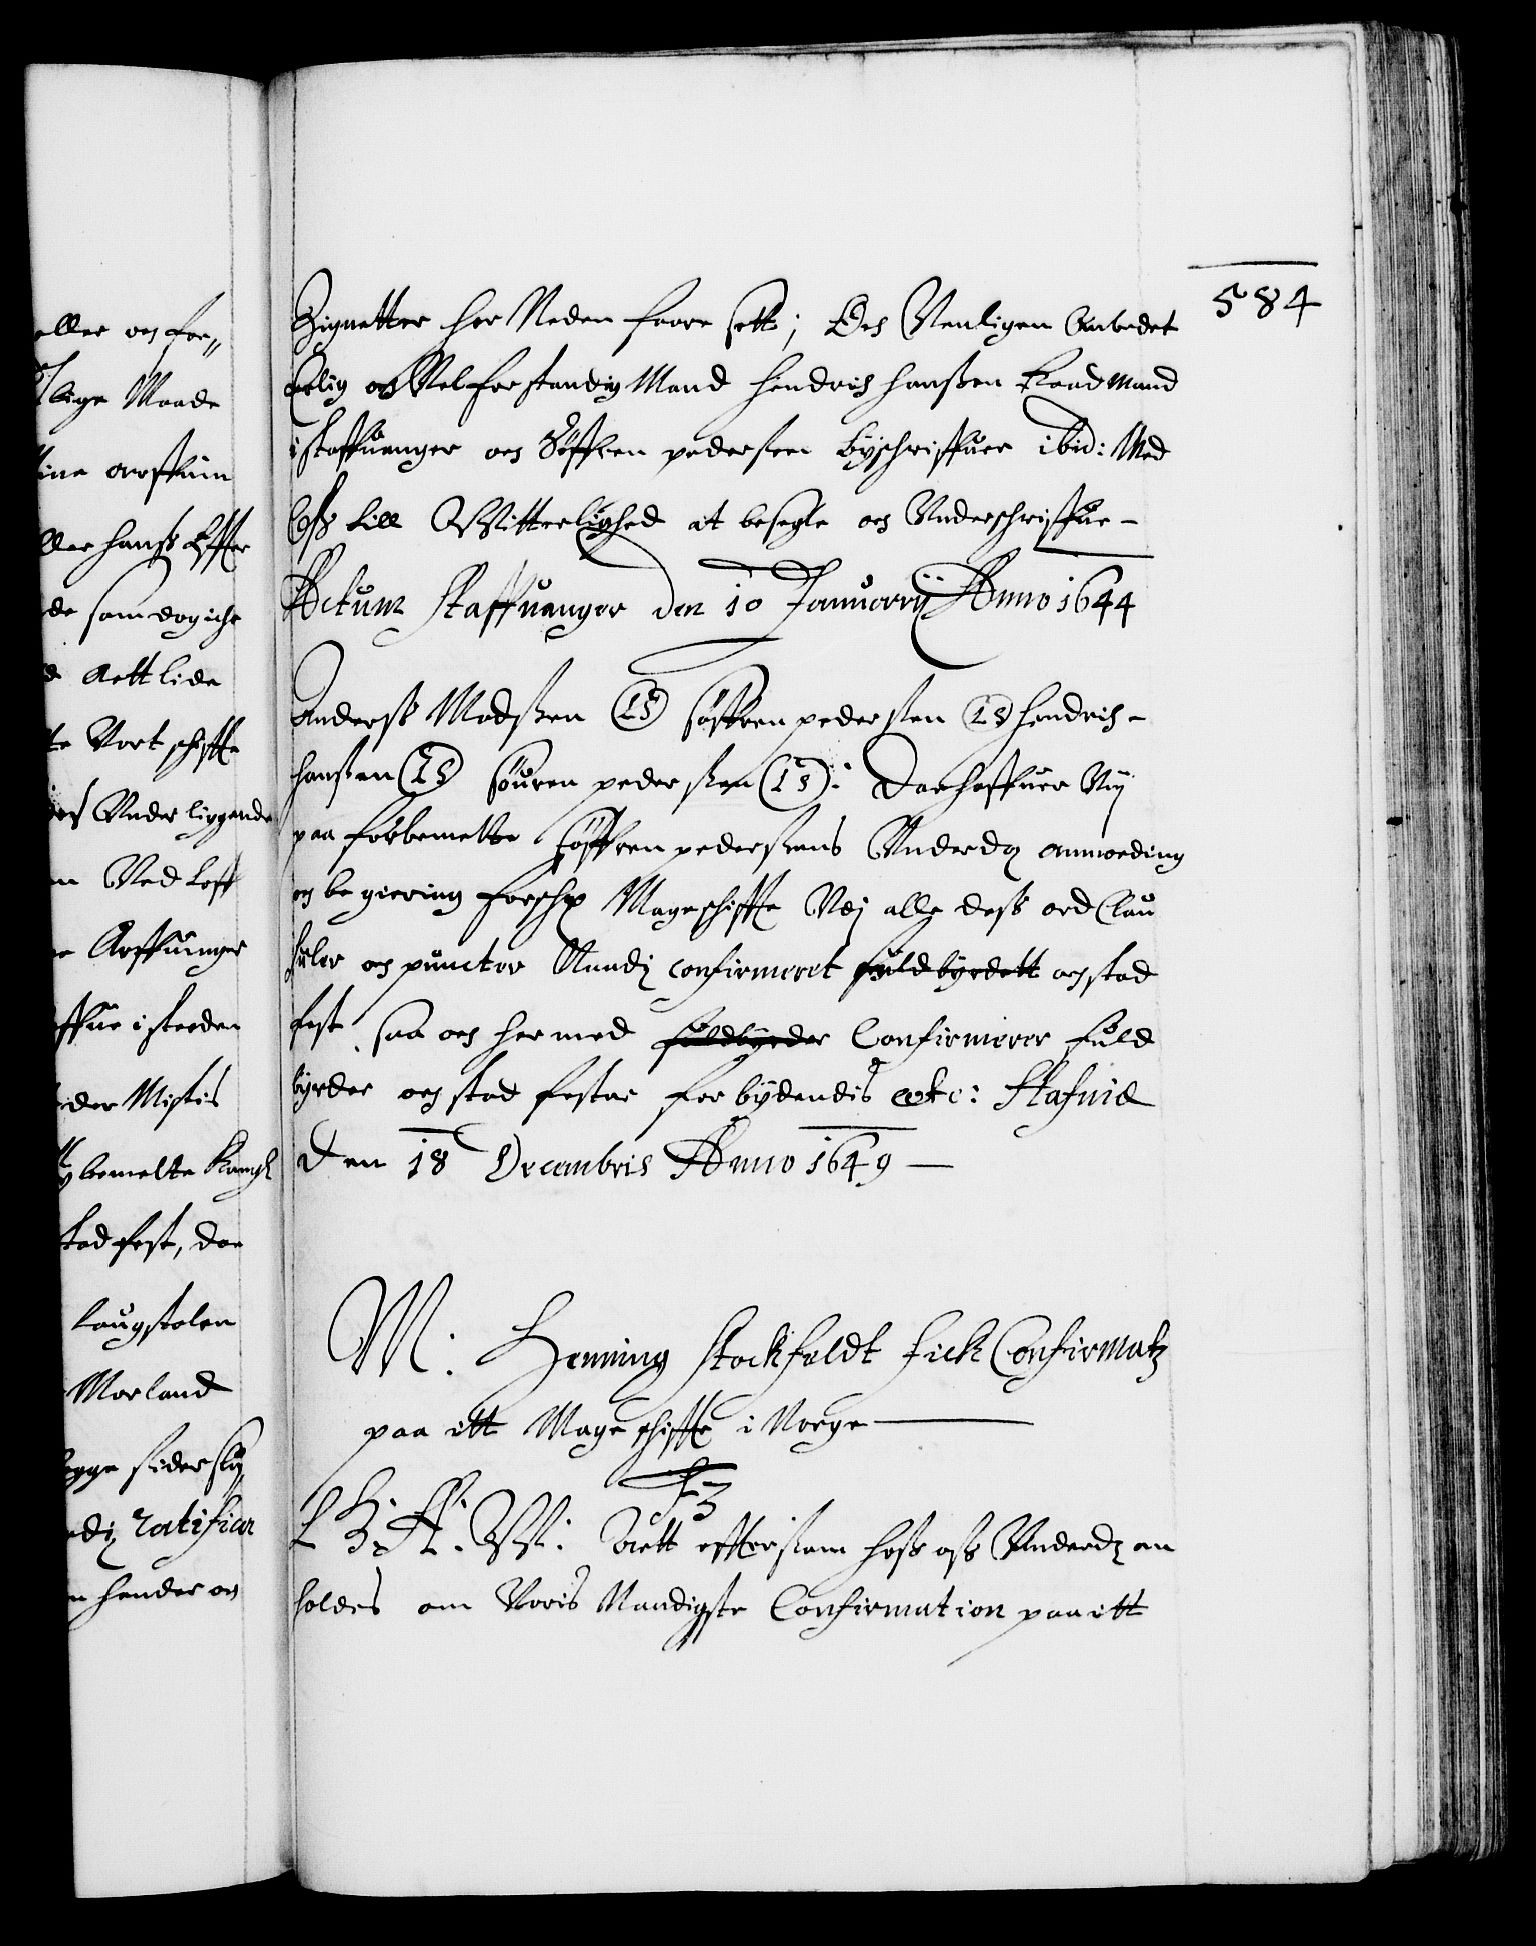 eller och for„
lige Maade
sine arffuin
ller hanß Effter
de som dog iche
d Rett lide
te Vort schifte
Under liggende
n Ved Loff
e Arffuinger
ffue i steden
der Mistis
bemelte Kongl
stad fest, dor
Laugstolen
Morland
egge sider
ndi ratificer
n hender och
584
Zignetter her Neden faare sett; Och Venligen ombedet
Erlig och Velforstandig Mand Hendrich Hanßen Raadmand
i Staffuanger och Söffren pedersen byschriffuer ibid: Med
Oß till Witterlighed at besegle och Underschriffue –
Actum Staffuanger den 10 Januarij Anno 1644
Anderß Madsen LS Söffren pedersen LS Hendrich –
Hanßen LS Söuren pedersen LS: Da haffuer Vij
paa forbemelte Söffren pedersens Underd anmoding
och begiering forsch Mageschiffte Vdj alle deß ord Clau
suler och puncter Naadj confirmeret fuldbyrdett och stad
fest, saa och her med fuldbyrder Confirmerer fuld
byrder och stad fester forbydendis etc: Hafniæ
Den 18 Decembris Anno 1649 –
M. Henning Stockfeldt fick Confirmatz
paa itt Mage schiffte i Norge
F3
G. A. W. Att effterßom hoß oß Underd an
holdes om Voris Naadigste Confirmation paa itt